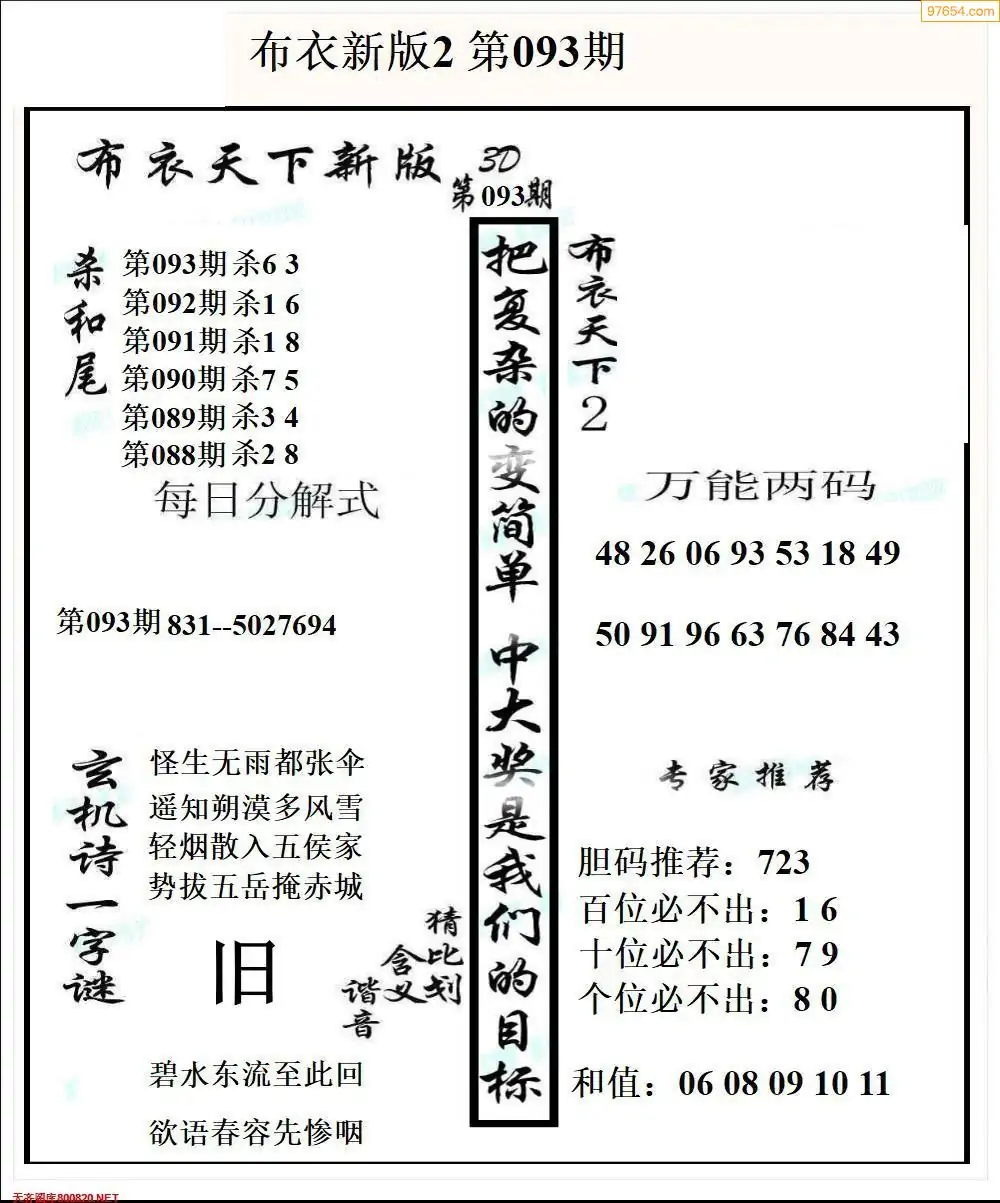 97654.com
布衣新版2 第093期
布衣天下新版
3D
第093期
杀和尾
第093期 杀6 3
第092期 杀1 6
第091期 杀1 8
第090期 杀7 5
第089期 杀3 4
第088期 杀2 8
每日分解式
第093期 831--5027694
玄机诗一字谜
怪生无雨都张伞
遥知朔漠多风雪
轻烟散入五侯家
势拔五岳掩赤城
旧
猜比划
含义
谐音
碧水东流至此回
欲语春容先惨咽
把复杂的变简单 中大奖是我们的目标
布衣天下2
万能两码
48 26 06 93 53 18 49
50 91 96 63 76 84 43
专家推荐
胆码推荐：723
百位必不出：1 6
十位必不出：7 9
个位必不出：8 0
和值：06 08 09 10 11
天齐图库800820.NET